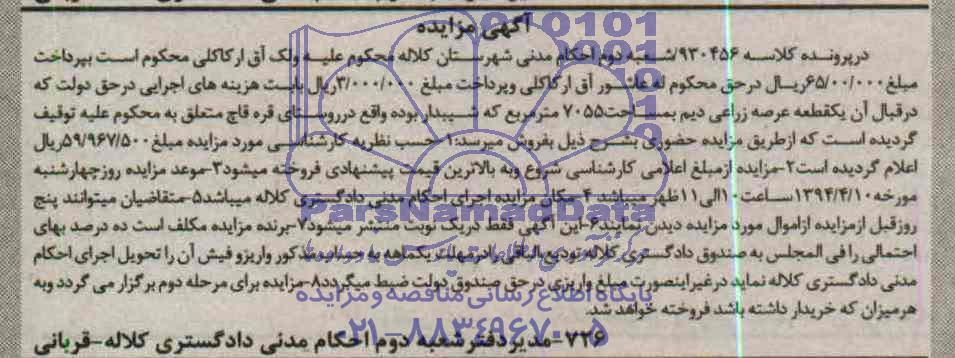 آگهی مزایده
درپرونده کلاسه ۹۳۰۴۵۶/شعبه دوم احکام مدنی شهرستان کلاله محکوم علیه ولک آق ارکاکلی محکوم است بپرداخت
مبلغ۶۵/۰۰/۰۰۰ریال درحق محکوم له عاشور آق ارکاکلی وپرداخت مبلغ ۳/۰۰۰/۰۰۰ریال بابت هزینه های اجرایی درحق دولت که
درقبال آن یکقطعه عرصه زراعی دیم بمساحت۷۰۵۵ مترمربع که شیبدار بوده واقع درروستای قره قاچ متعلق به محکوم علیه توقیف
گردیده است که ازطریق مزایده حضوری بشرح ذیل بفروش میرسد:۱-حسب نظریه کارشناسی مورد مزایده مبلغ۵۹/۹۶۷/۵۰۰ریال
اعلام گردیده است۲-مزایده ازمبلغ اعلامی کارشناسی شروع وبه بالاترین قیمت پیشنهادی فروخته میشود۳-موعد مزایده روزچهارشنبه
مورخه۱۳۹۴/۴/۱۰ساعت ۱۰الی۱۱ظهر میباشد۴-مکان مزایده اجرای احکام مدنی دادگستری کلاله میباشد۵-متقاضیان میتوانند پنج
روزقبل ازمزایده ازاموال مورد مزایده دیدن نمایند۶-این آگهی فقط دریک نوبت منتشر میشود۷-برنده مزایده مکلف است ده درصد بهای
احتمالی را فی المجلس به صندوق دادگستری کلاله تودیع والباقی رادرمهلت یکماهه به حساب مذکور واریزو فیش آن را تحویل اجرای احکام
مدنی دادگستری کلاله نماید درغیراینصورت مبلغ واریزی درحق صندوق دولت ضبط میگردد۸-مزایده برای مرحله دوم برگزار می گردد وبه
هرمیزان که خریدار داشته باشد فروخته خواهد شد.
۷۲۶-مدیردفترشعبه دوم احکام مدنی دادگستری کلاله-قربانی
ParsNamadData
پایگاه اطلاع رسانی مناقصه و مزایده
۰۲۱-۸۸۳۴۹۶۷۰-۵